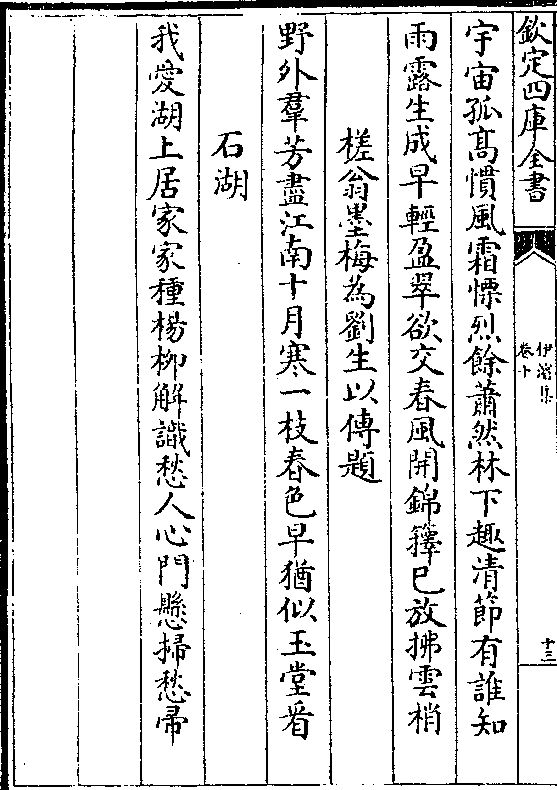 欽定四庫全書
伊濱集
卷十
十三
宇宙孤高慣風霜慄烈餘蕭然林下趣清節有誰知
雨露生成早輕盈翠欲交春風開錦籜已放拂雲梢
槎翁墨梅為劉生以傳題
野外羣芳盡江南十月寒一枝春色早猶似玉堂看
石湖
我愛湖上居家家種楊柳解識愁人心門懸掃愁帚